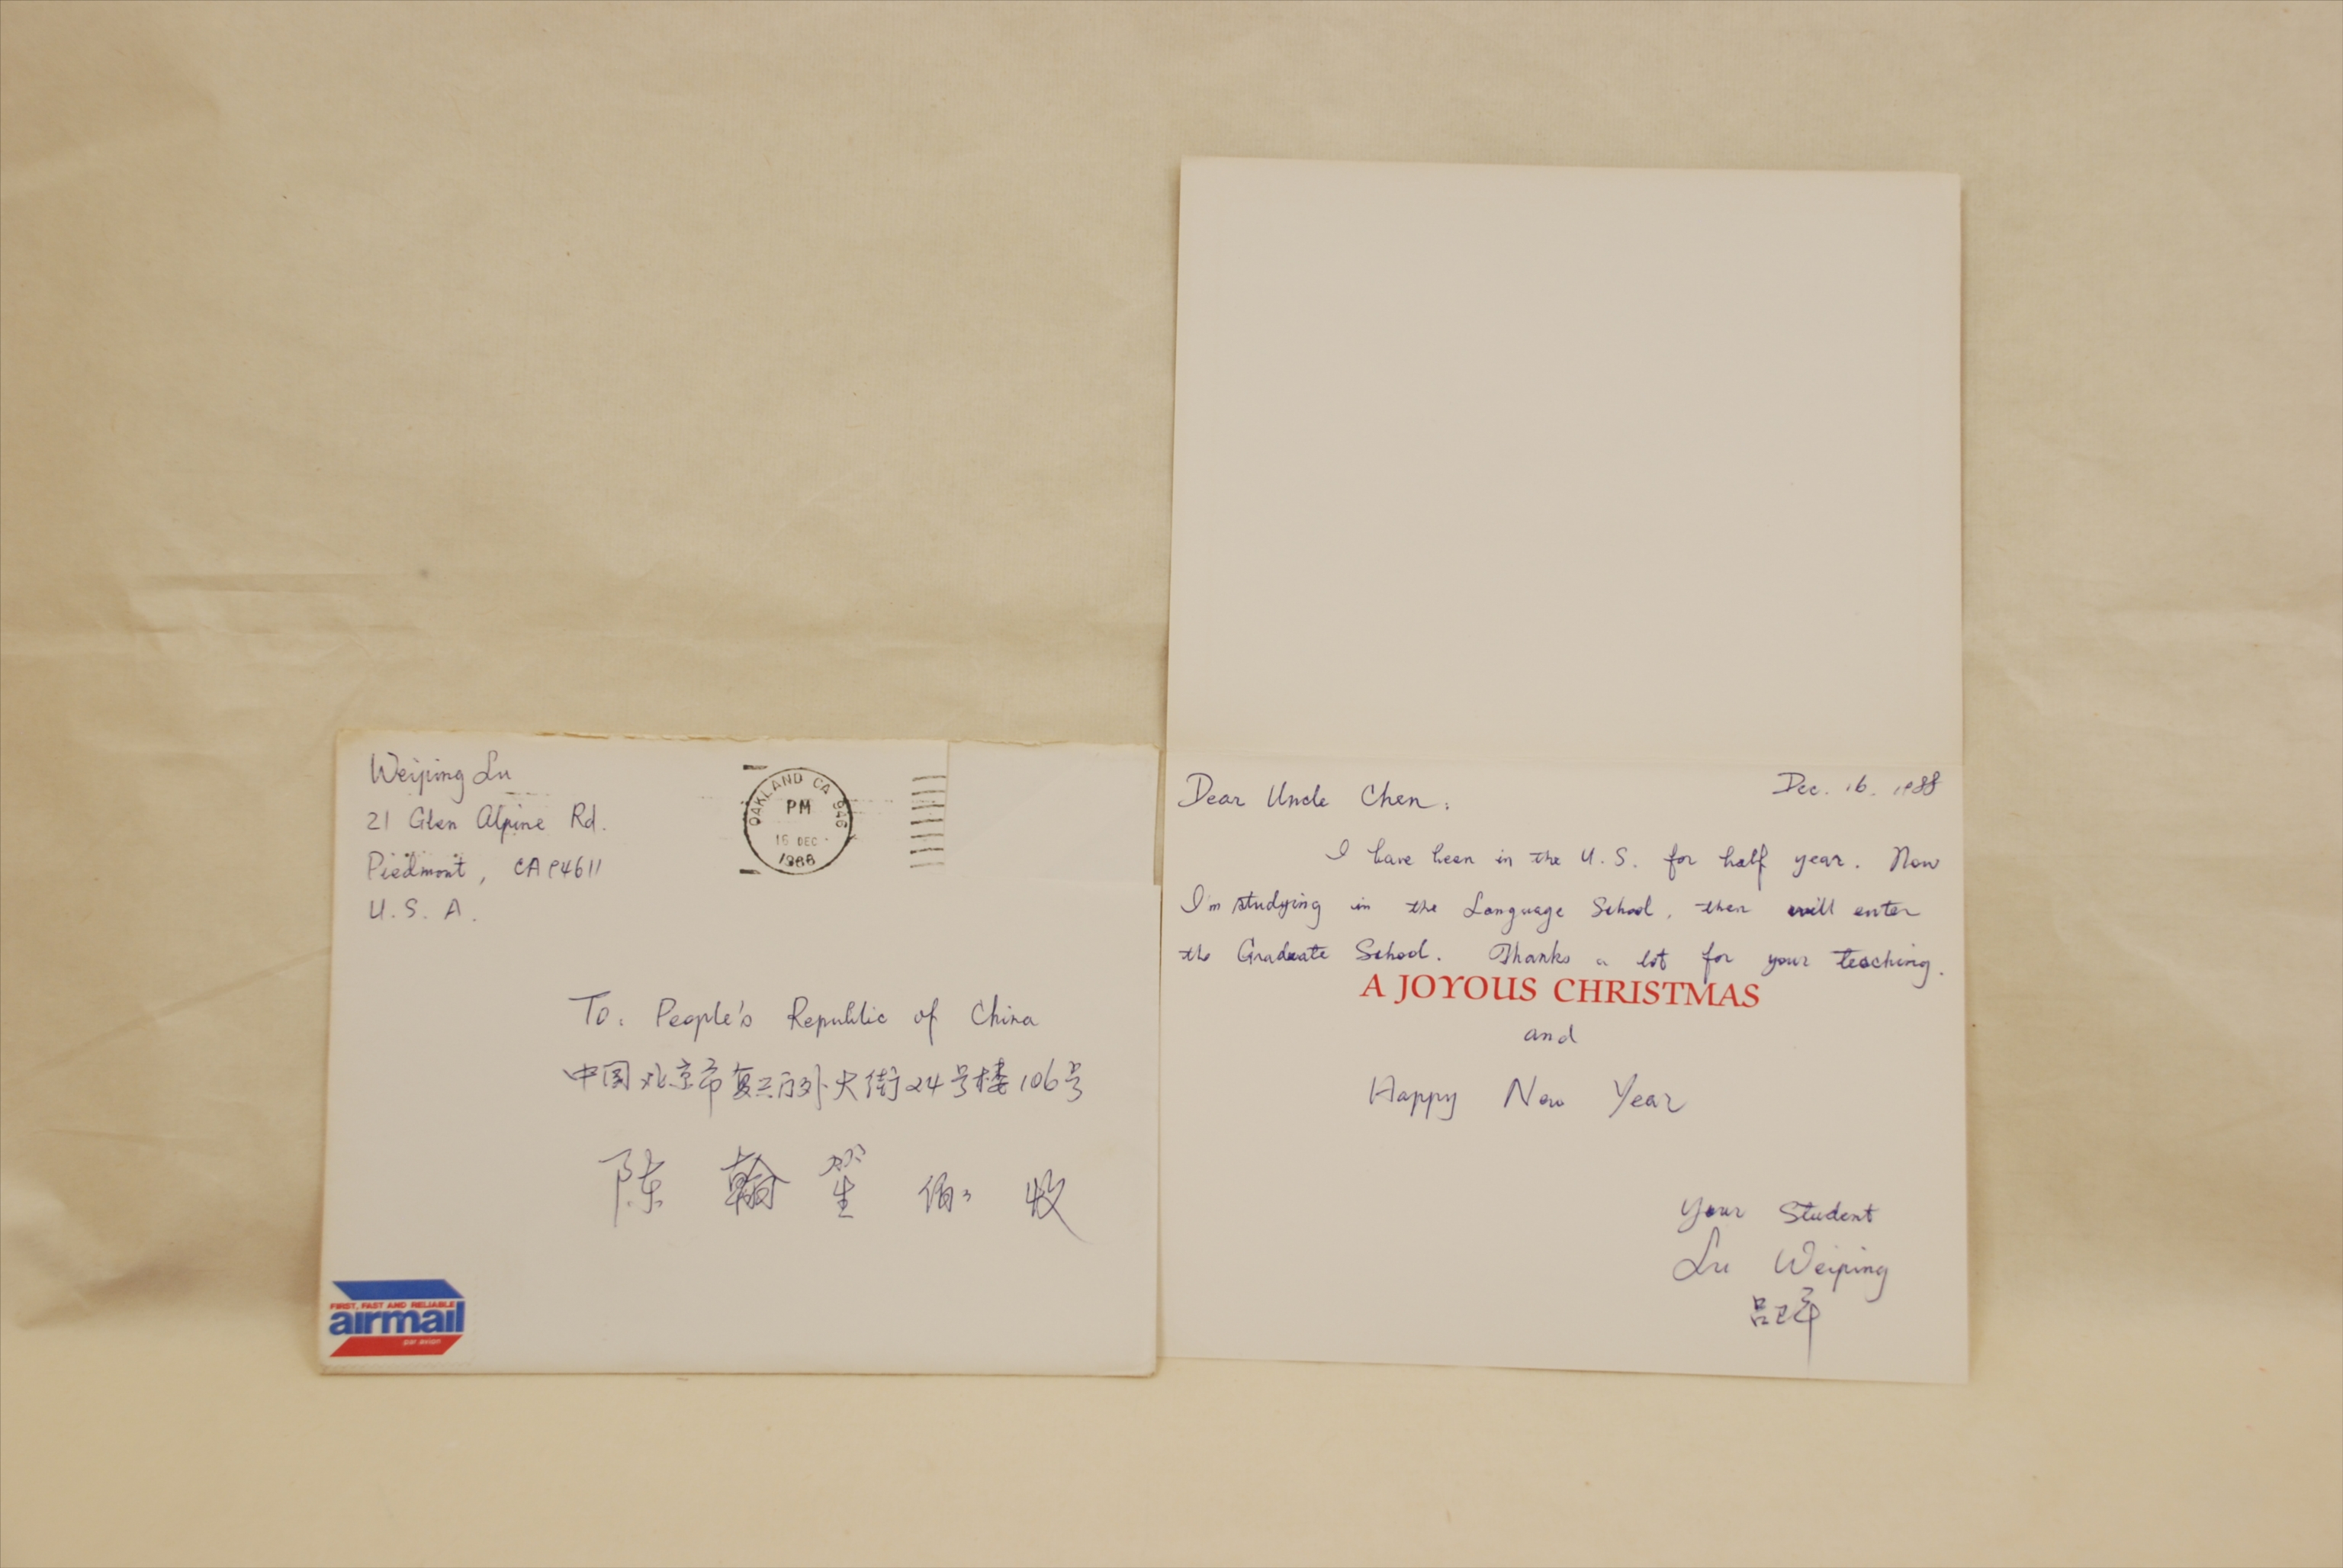 Weiping Lu
21 Glen Alpine Rd.
Piedmont, CA 94611
U.S.A.
OAKLAND CA 946
PM
16 DEC
1988
To: People's Republic of China
中国北京市复兴门外大街24号楼106号
陈翰笙 伯伯 收
FIRST, FAST AND RELIABLE
airmail
par avion
Dec. 16. 1988
Dear Uncle Chen:
I have been in the U.S. for half year. Now
I'm studying in the Language School, then will enter
the Graduate School. Thanks a lot for your teaching.
A JOYOUS CHRISTMAS
and
Happy New Year
Your Student
Lu Weiping
吕卫平